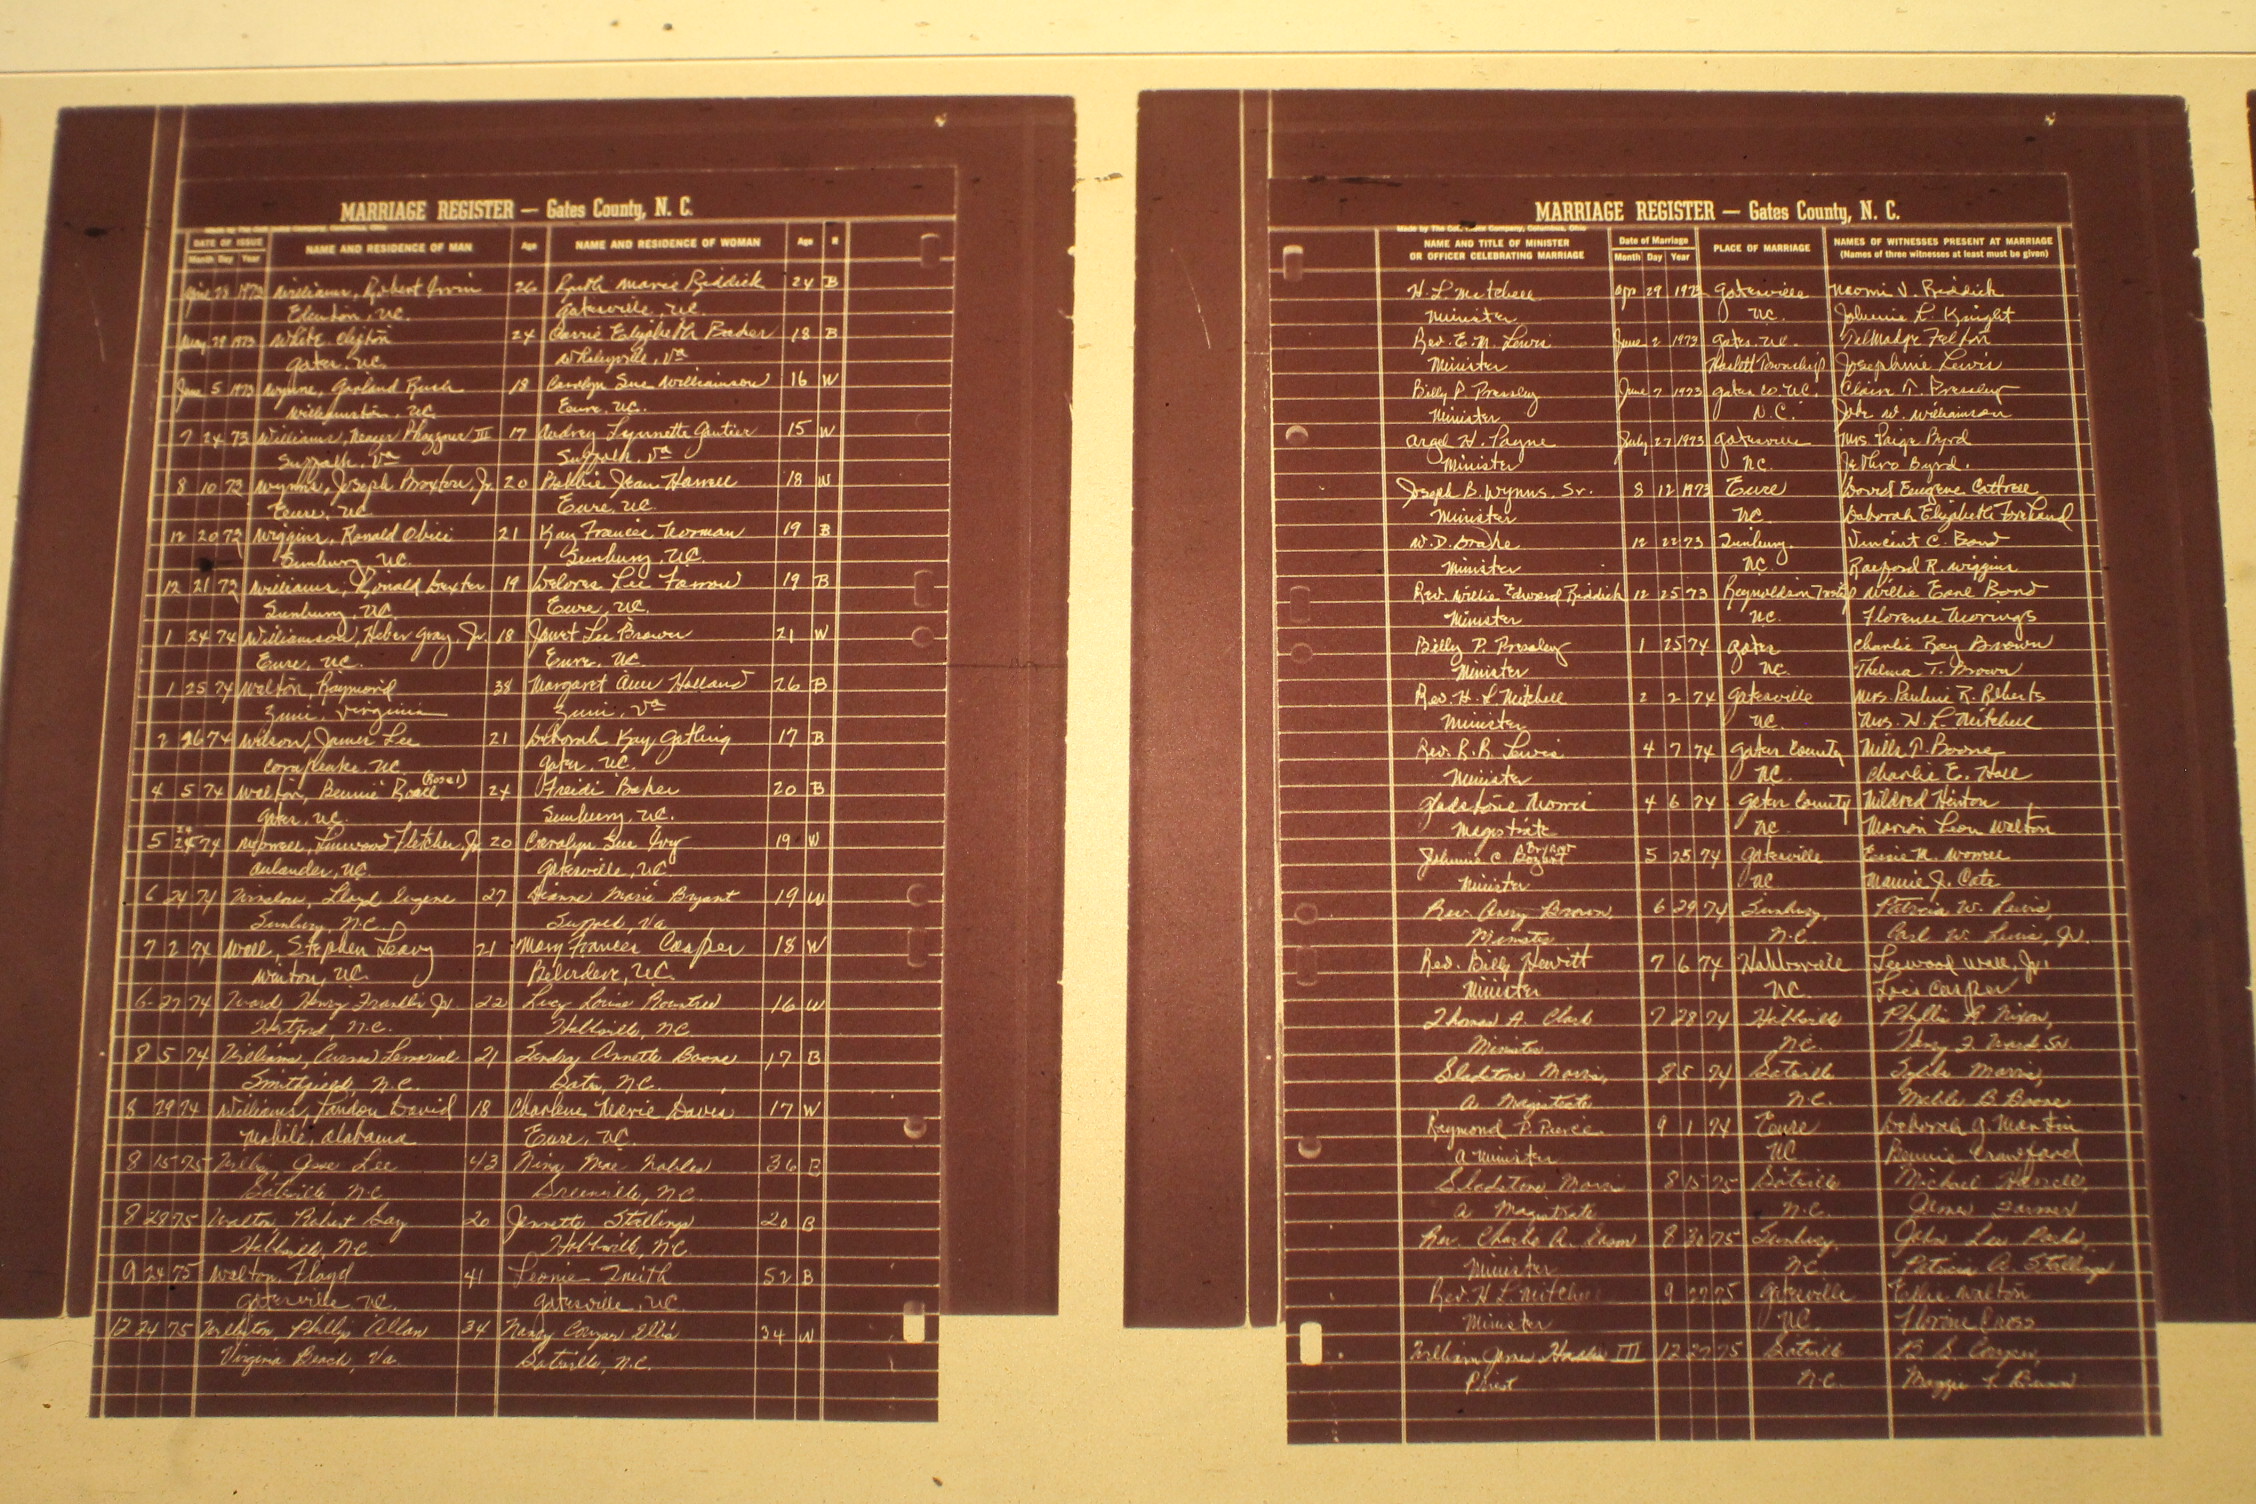 MARRIAGE REGISTER — Gates County, N. C.
DATE OF ISSUE
Month Day Year
NAME AND RESIDENCE OF MAN
Age
NAME AND RESIDENCE OF WOMAN
Age
R
1973 Williams, Robert Irvin 26 Ruth Marie Riddick 24 B
Edenton, N.C. Gatesville, N.C.
May 29 1973 White, Clifton 24 Carrie Elizabeth Booker 18 B
Gates, N.C. Whaleyville, Va
June 5 1973 Wynne, Garland Rush 18 Carolyn Sue Williamson 16 W
Williamston, N.C. Eure, N.C.
7 24 73 Williams, III 17 Audrey Lynnette Gautier 15 W
Suffolk, Va Suffolk, Va
8 10 73 Wynns, Joseph Braxton, Jr. 20 Bobbie Jean Harrell 18 W
Eure, N.C. Eure, N.C.
12 20 73 Wiggins, Ronald Obici 21 Kay Francis Norman 19 B
Sunbury, N.C. Sunbury, N.C.
12 21 73 Williams, Ronald Dexter 19 Delores Lee Farrow 19 B
Sunbury, N.C. Eure, N.C.
1 24 74 Williamson, Heber Gray, Jr. 18 Janet Lee Brown 21 W
Eure, N.C. Eure, N.C.
1 25 74 Walton, Raymond 38 Margaret Ann Holland 26 B
Zuni, Virginia Zuni, Va
2 26 74 Wilson, James Lee 21 Deborah Kay Gatling 17 B
Corapeake, N.C. Gates, N.C.
4 5 74 Walton, Bennie 24 Freidi Baker 20 B
Gates, N.C. Sunbury, N.C.
5 24 74 Linwood Fletcher Jr. 20 Carolyn Sue Ivy 19 W
Aulander, N.C. Gatesville, N.C.
6 24 74 Winslow, Lloyd Eugene 27 Dianne Marie Bryant 19 W
Sunbury, N.C. Va
7 2 74 Wall, Stephen Leavy 21 Mary Frances Casper 18 W
Winton, N.C. Belvidere, N.C.
6-27 74 Ward, Henry Franklin Jr. 22 Lucy Louise Rountree 16 W
Hertford, N.C. Hobbsville, NC
8 5 74 Williams, 21 Sandra Annette Boone 17 B
Smithfield, N.C. Gates, N.C.
8 29 74 Williams, Landon David 18 Charlene Marie Davis 17 W
Mobile, Alabama Eure, N.C.
8 15 75 Jesse Lee 43 Nina Mae 36 B
Gatesville, N.C. Greenville, N.C.
8 28 75 Walton, Robert Gay 20 Jennette Stallings 20 B
Hobbsville, NC Hobbsville, NC
9 24 75 Walton, Floyd 41 Leonie Smith 52 B
Gatesville, N.C. Gatesville, N.C.
12 24 75 Phillip Allan 34 Nancy Cowper Ellis 34 W
Virginia Beach, Va. Gatesville, N.C.
MARRIAGE REGISTER — Gates County, N. C.
NAME AND TITLE OF MINISTER
OR OFFICER CELEBRATING MARRIAGE
Date of Marriage
Month Day Year
PLACE OF MARRIAGE
NAMES OF WITNESSES PRESENT AT MARRIAGE
(Names of three witnesses at least must be given)
H. L. Mitchell Apr 29 1973 Gatesville Naomi V. Riddick
Minister N.C. Johnnie L. Knight
Rev. E. N. Lewis June 2 1973 Gates, N.C. Talmadge Felton
Minister Haslett Township Josephine Lewis
Billy P. Pressley June 7 1973 Gates Co. N.C. Claire T. Pressley
Minister N.C. John W. Williamson
Argel H. Payne July 27 1973 Gatesville Mrs Paige Byrd
Minister N.C. Jethro Byrd.
Joseph B. Wynns, Sr. 8 12 1973 Eure David Eugene Cottrell
Minister N.C. Deborah Elizabeth Foreland
W. D. Drake 12 22 73 Sunbury, Vincent C. Bond
Minister N.C. Rayford R. Wiggins
Rev. Willie Edward Riddick 12 25 73 Reynoldson Willie Earl Bond
Minister N.C. Florence
Billy P. Pressley 1 25 74 Gates Charlie Ray Brown
Minister N.C. Thelma T. Brown
Rev. H. L. Mitchell 2 2 74 Gatesville Mrs Pauline R. Roberts
Minister N.C. Mrs. H. L. Mitchell
Rev. R. R. Lewis 4 7 74 Gates County Mills P. Boone
Minister N.C. Charlie E. Hall
Gladstone Morris 4 6 74 Gates County Mildred Hinton
Magistrate N.C. Marion Leon Walton
Johnnie C. Bryant 5 25 74 Gatesville
Minister N.C. Mamie J. Cate
Rev. Avery Brown, 6 29 74 Sunbury, Patricia W. Lewis,
Minister N.C. Carl W. Lewis, Jr.
Rev. Billy Hewitt 7 6 74 Hobbsville Leewood Wall, Jr.
Minister N.C. Lois Casper
Thomas A. Clark 7 28 74 Hobbsville Phyllis A. Nixon,
Minister N.C. Henry F. Ward Sr.
Gladstone Morris, 8 5 74 Gatesville Morris,
A Magistrate N.C. B Boone
Raymond P. Pierce 9 1 74 Eure Deborah G. Martin
A Minister N.C. Bennie Crawford
Gladstone Morris 8 15 75 Gatesville Michael Harrell,
A Magistrate N.C. James Farmer
Rev. Charlie A. Eason 8 30 75 Sunbury, John Lee
Minister N.C. Patricia A. Stallings
Rev. H. L. Mitchell 9 27 75 Gatesville Ellie Walton
Minister N.C. Florine Cross
William James III 12 27 75 Gatesville B. S. Cowper,
Priest N.C. Maggie